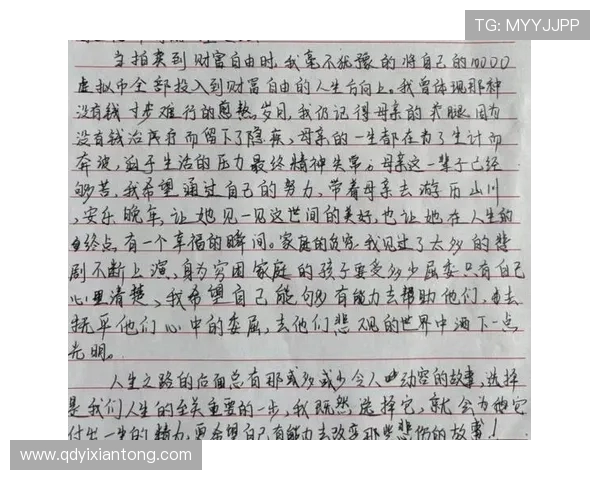 TG: MYYJJPP
当拍卖到财富自由时,我毫不犹豫的将自己的10000
虚拟币全部投入到财富自由的人生方向上。我曾体现那种
没有钱寸步难行的岁月,我仍记得母亲的腿因为
没有钱治疗而留下了隐疾,母亲的一生都在为了生计而
奔波,迫于生活的压力最终精神失常。母亲这一辈子已经
够苦,我希望通过自己的努力,带着母亲去游历山川
,安乐晚年,让她见一见这世间的美好,也让她在人生的
终点有一个幸福的瞬间。家庭的贫穷,我见过了太多的悲
剧不断上演,身为穷困家庭的孩子要受多少屈委只有自己
心里清楚,我希望自己能够有能力去帮助他们,去
抚平他们心中的委屈,去他们悲观的世界中洒下一点
光明。
人生之路的后面总有那或多或少令人动容的故事,选择
是我们人生的至关重要的一步,我既然选择它,就会为他
付出一生的精力,更希望自己有能力去改变那些悲伤的故事!
www.qdyixiantong.com